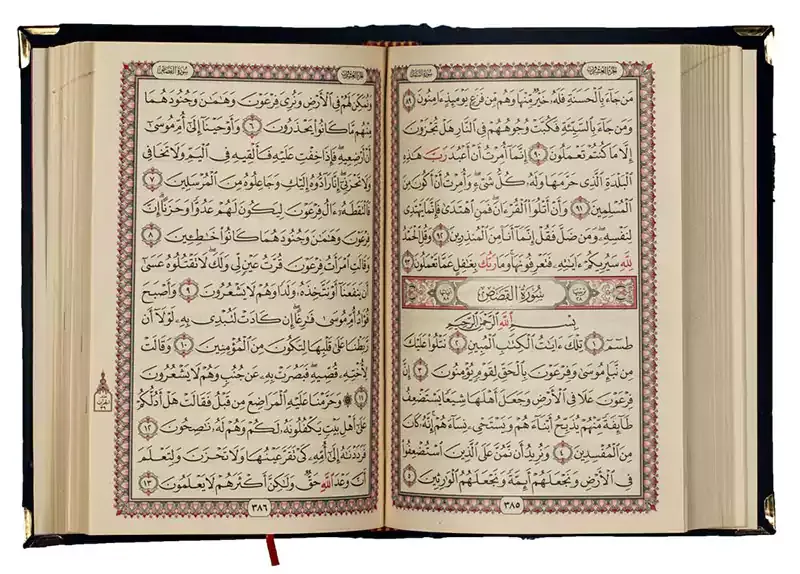 الجزء العشرون سورة النمل
مَن جَآءَ بِٱلْحَسَنَةِ فَلَهُۥ خَيْرٌ مِّنْهَا وَهُم مِّن فَزَعٍ يَوْمَئِذٍ ءَامِنُونَ ٨٩
وَمَن جَآءَ بِٱلسَّيِّئَةِ فَكُبَّتْ وُجُوهُهُمْ فِى ٱلنَّارِ هَلْ تُجْزَوْنَ
إِلَّا مَا كُنتُمْ تَعْمَلُونَ ٩٠ إِنَّمَآ أُمِرْتُ أَنْ أَعْبُدَ رَبَّ هَٰذِهِ
ٱلْبَلْدَةِ ٱلَّذِى حَرَّمَهَا وَلَهُۥ كُلُّ شَىْءٍ وَأُمِرْتُ أَنْ أَكُونَ مِنَ
ٱلْمُسْلِمِينَ ٩١ وَأَنْ أَتْلُوَا۟ ٱلْقُرْءَانَ فَمَنِ ٱهْتَدَىٰ فَإِنَّمَا يَهْتَدِى
لِنَفْسِهِۦ وَمَن ضَلَّ فَقُلْ إِنَّمَآ أَنَا۠ مِنَ ٱلْمُنذِرِينَ ٩٢ وَقُلِ ٱلْحَمْدُ
لِلَّهِ سَيُرِيكُمْ ءَايَٰتِهِۦ فَتَعْرِفُونَهَا وَمَا رَبُّكَ بِغَٰفِلٍ عَمَّا تَعْمَلُونَ ٩٣
سُورَةُ القَصَصِ
بِسْمِ ٱللَّهِ ٱلرَّحْمَٰنِ ٱلرَّحِيمِ
طسٓمٓ ١ تِلْكَ ءَايَٰتُ ٱلْكِتَٰبِ ٱلْمُبِينِ ٢ نَتْلُوا۟ عَلَيْكَ
مِن نَّبَإِ مُوسَىٰ وَفِرْعَوْنَ بِٱلْحَقِّ لِقَوْمٍ يُؤْمِنُونَ ٣ إِنَّ
فِرْعَوْنَ عَلَا فِى ٱلْأَرْضِ وَجَعَلَ أَهْلَهَا شِيَعًا يَسْتَضْعِفُ
طَآئِفَةً مِّنْهُمْ يُذَبِّحُ أَبْنَآءَهُمْ وَيَسْتَحْىِۦ نِسَآءَهُمْ إِنَّهُۥ كَانَ
مِنَ ٱلْمُفْسِدِينَ ٤ وَنُرِيدُ أَن نَّمُنَّ عَلَى ٱلَّذِينَ ٱسْتُضْعِفُوا۟
فِى ٱلْأَرْضِ وَنَجْعَلَهُمْ أَئِمَّةً وَنَجْعَلَهُمُ ٱلْوَٰرِثِينَ ٥
٣٨٥
الجزء العشرون سورة القصص
وَنُمَكِّنَ لَهُمْ فِى ٱلْأَرْضِ وَنُرِىَ فِرْعَوْنَ وَهَٰمَٰنَ وَجُنُودَهُمَا
مِنْهُم مَّا كَانُوا۟ يَحْذَرُونَ ٦ وَأَوْحَيْنَآ إِلَىٰٓ أُمِّ مُوسَىٰٓ
أَنْ أَرْضِعِيهِ فَإِذَا خِفْتِ عَلَيْهِ فَأَلْقِيهِ فِى ٱلْيَمِّ وَلَا تَخَافِى
وَلَا تَحْزَنِىٓ إِنَّا رَآدُّوهُ إِلَيْكِ وَجَاعِلُوهُ مِنَ ٱلْمُرْسَلِينَ ٧
فَٱلْتَقَطَهُۥٓ ءَالُ فِرْعَوْنَ لِيَكُونَ لَهُمْ عَدُوًّا وَحَزَنًا إِنَّ
فِرْعَوْنَ وَهَٰمَٰنَ وَجُنُودَهُمَا كَانُوا۟ خَٰطِـِٔينَ ٨
وَقَالَتِ ٱمْرَأَتُ فِرْعَوْنَ قُرَّتُ عَيْنٍ لِّى وَلَكَ لَا تَقْتُلُوهُ عَسَىٰٓ
أَن يَنفَعَنَآ أَوْ نَتَّخِذَهُۥ وَلَدًا وَهُمْ لَا يَشْعُرُونَ ٩ وَأَصْبَحَ
فُؤَادُ أُمِّ مُوسَىٰ فَٰرِغًا إِن كَادَتْ لَتُبْدِى بِهِۦ لَوْلَآ أَن
رَّبَطْنَا عَلَىٰ قَلْبِهَا لِتَكُونَ مِنَ ٱلْمُؤْمِنِينَ ١٠ وَقَالَتْ
لِأُخْتِهِۦ قُصِّيهِ فَبَصُرَتْ بِهِۦ عَن جُنُبٍ وَهُمْ لَا يَشْعُرُونَ
١١ ۞ وَحَرَّمْنَا عَلَيْهِ ٱلْمَرَاضِعَ مِن قَبْلُ فَقَالَتْ هَلْ أَدُلُّكُمْ
عَلَىٰٓ أَهْلِ بَيْتٍ يَكْفُلُونَهُۥ لَكُمْ وَهُمْ لَهُۥ نَٰصِحُونَ ١٢
فَرَدَدْنَٰهُ إِلَىٰٓ أُمِّهِۦ كَىْ تَقَرَّ عَيْنُهَا وَلَا تَحْزَنَ وَلِتَعْلَمَ
أَنَّ وَعْدَ ٱللَّهِ حَقٌّ وَلَٰكِنَّ أَكْثَرَهُمْ لَا يَعْلَمُونَ ١٣
٣٨٦